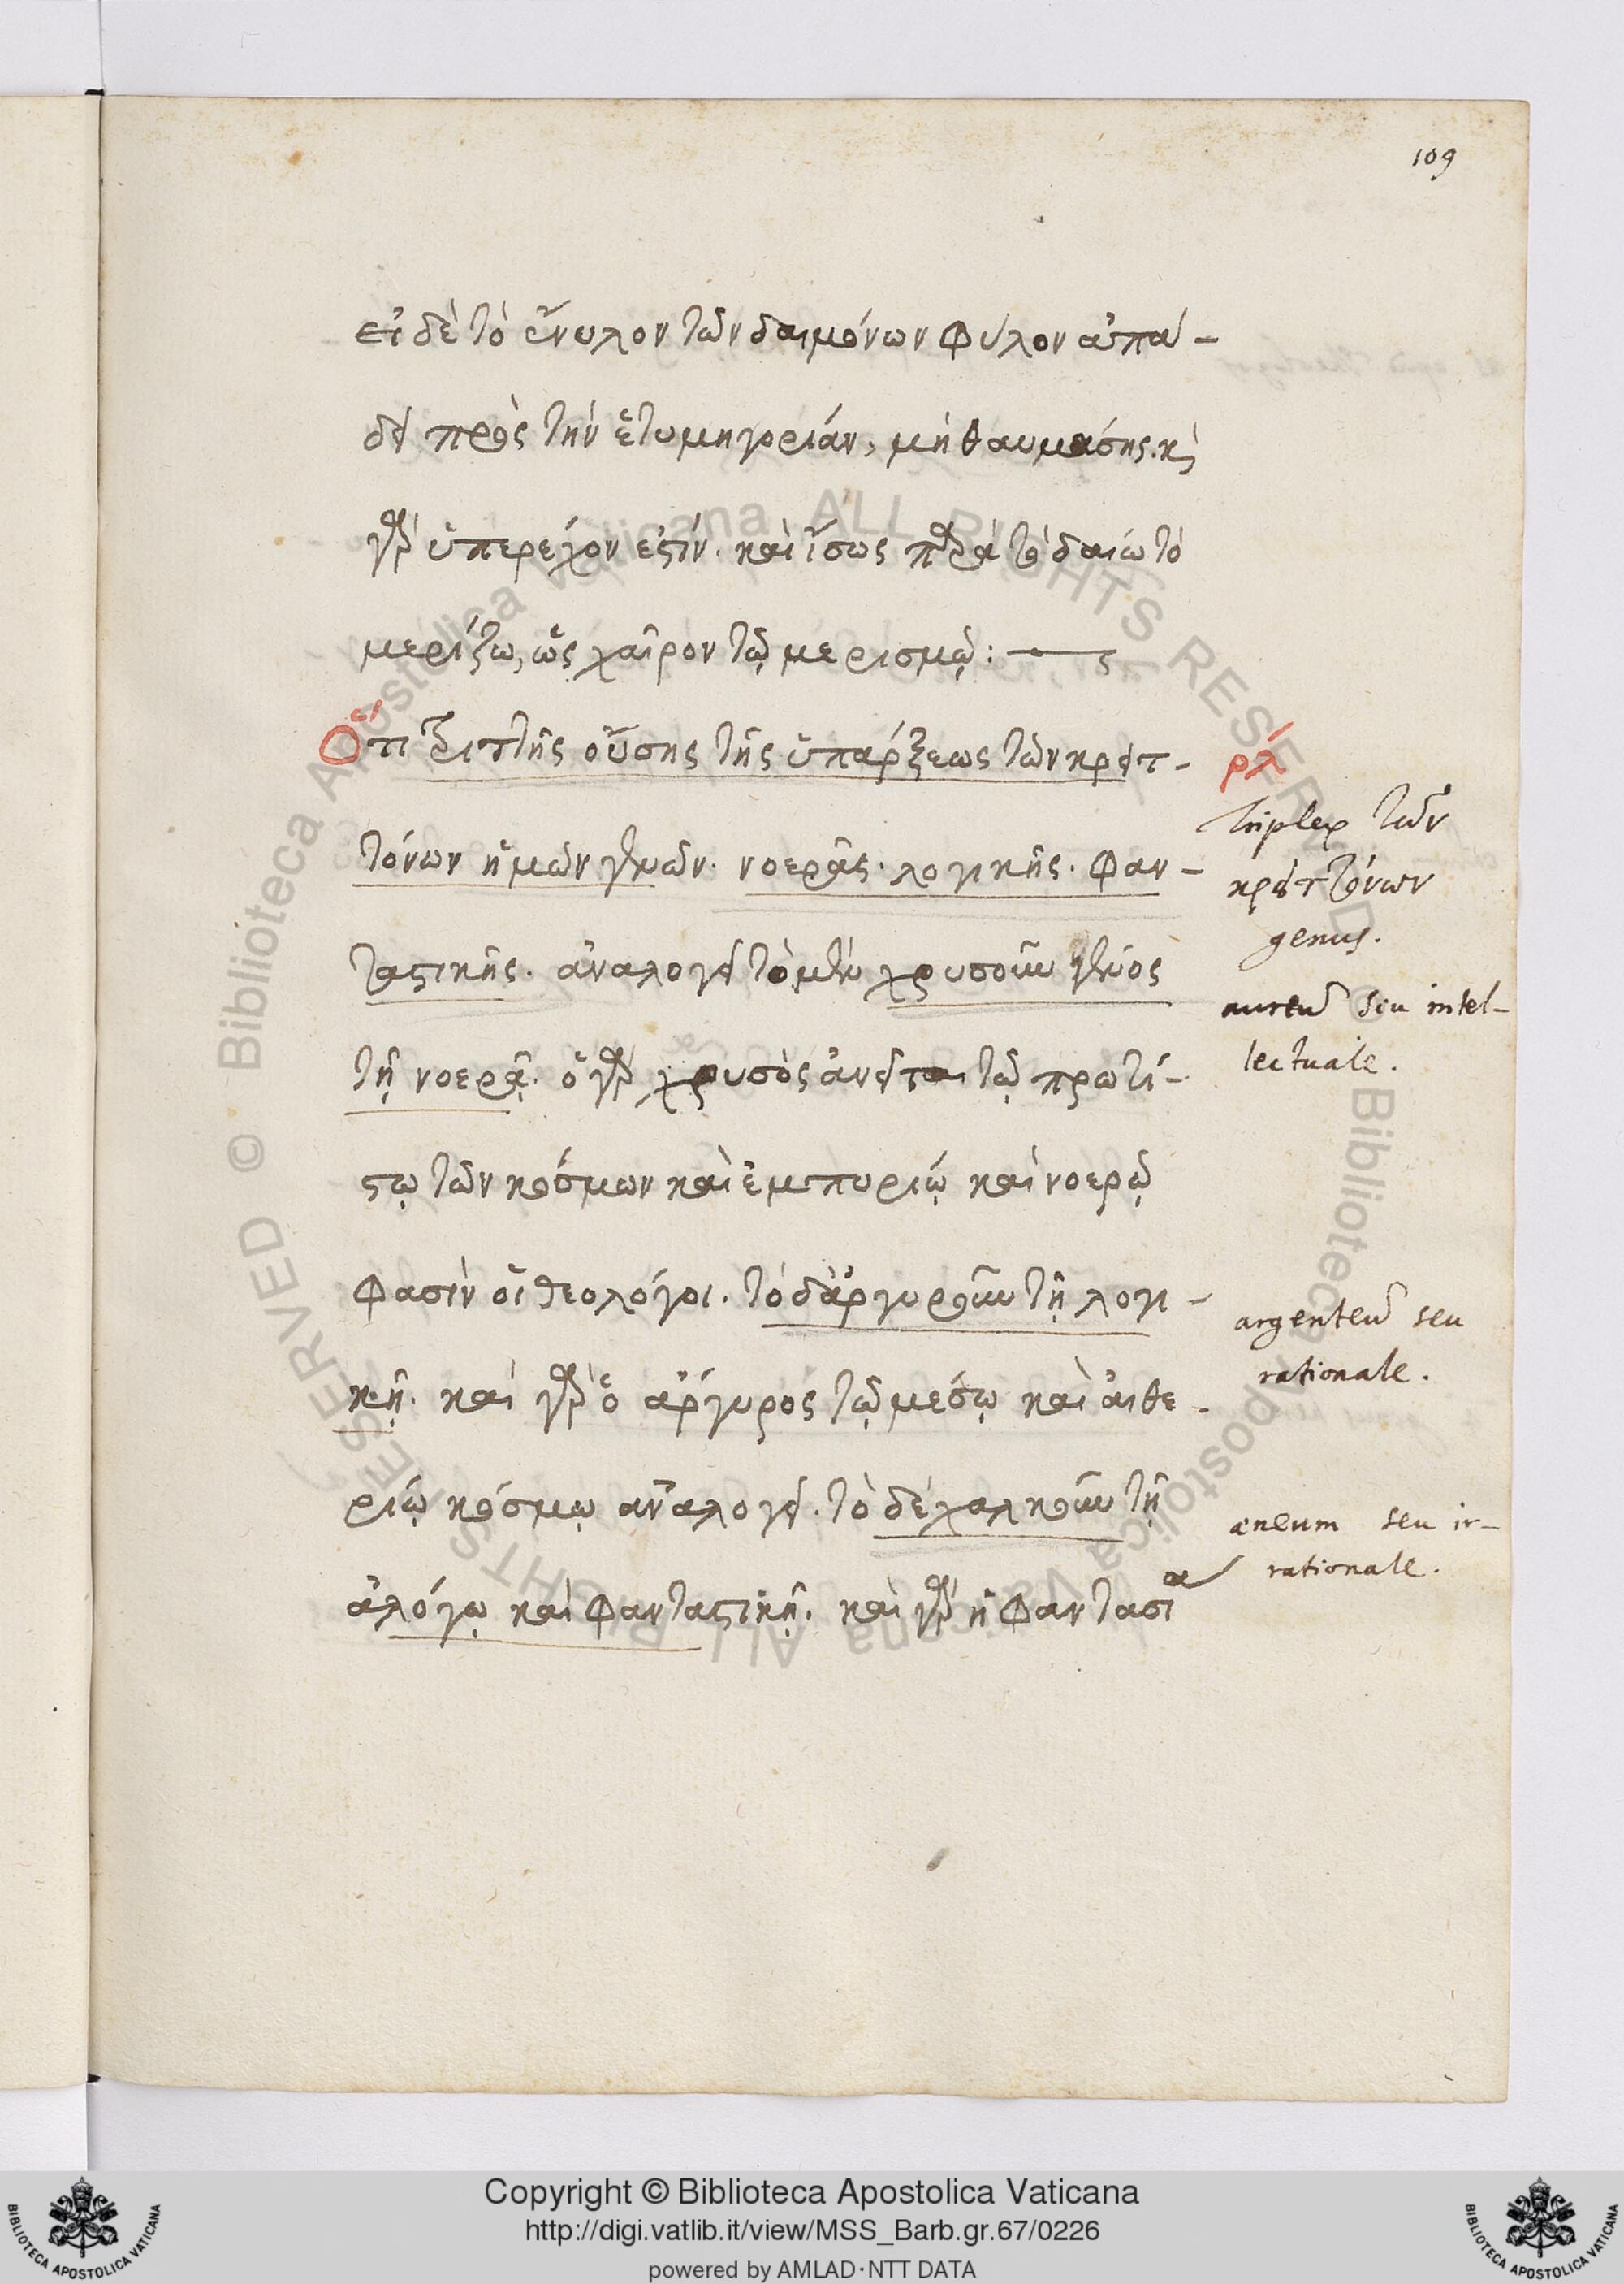 109
εἰ δὲ τὸ ἔνυλον τῶν δαιμόνων φύλον ἀπά-
δει πρὸς τὴν ἐτυμηγορίαν, μὴ θαυμάσῃς. κỳ
γὰρ ὑπερέχον ἐστίν. καὶ ἴσως παρὰ τὸ δαίω τὸ
μερίζω, ὡς χαῖρον τῷ μερισμῷ:
Ὅτι τριττῆς οὔσης τῆς ὑπάρξεως τῶν κρειτ-
τόνων ἡμῶν γενῶν. νοερᾶς. λογικῆς. φαν-
ταστικῆς. ἀναλογεῖ τὸ μὲν χρυσοῦν γένος
τῇ νοερᾷ. ὁ γὰρ χρυσὸς ἀνεῖται τῷ πρωτί-
στῳ τῶν κόσμων καὶ ἐμπυρίῳ καὶ νοερῷ
φασὶν οἱ θεολόγοι. τὸ δ' ἀργυροῦν τῇ λογι-
κῇ. καὶ γὰρ ὁ ἄργυρος τῷ μέσῳ καὶ αἰθε-
ρίῳ κόσμῳ ἀναλογεῖ. τὸ δὲ χαλκοῦν τῇ
ἀλόγῳ καὶ φανταστικῇ. καὶ γὰρ ἡ φαντασία
ρλ
triplex τῶν
κρειττόνων
genus.
aureū seu intel-
lectuale.
argenteū seu
rationale.
æneum seu ir-
rationale.
Copyright © Biblioteca Apostolica Vaticana
http://digi.vatlib.it/view/MSS_Barb.gr.67/0226
powered by AMLAD·NTT DATA
BIBLIOTECA APOSTOLICA VATICANA
BIBLIOTECA APOSTOLICA VATICANA
© Biblioteca Apostolica Vaticana ALL RIGHTS RESERVED
© Biblioteca Apostolica Vaticana ALL RIGHTS RESERVED